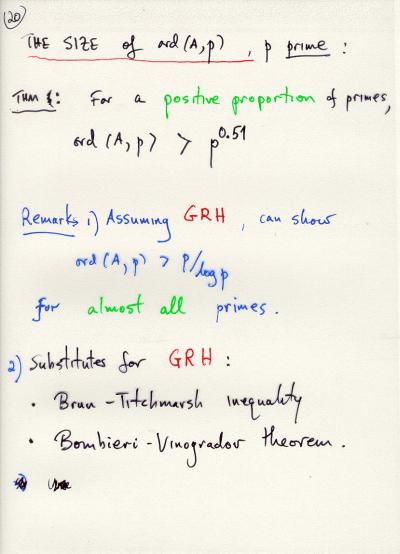 20
THE SIZE of ord(A,p), p prime:
THM : For a positive proportion of primes,
ord (A, p) > p^0.51
Remarks 1) Assuming GRH, can show
ord (A, p) > p/log p
for almost all primes.
2) Substitutes for GRH:
• Brun-Titchmarsh inequality
• Bombieri-Vinogradov theorem.